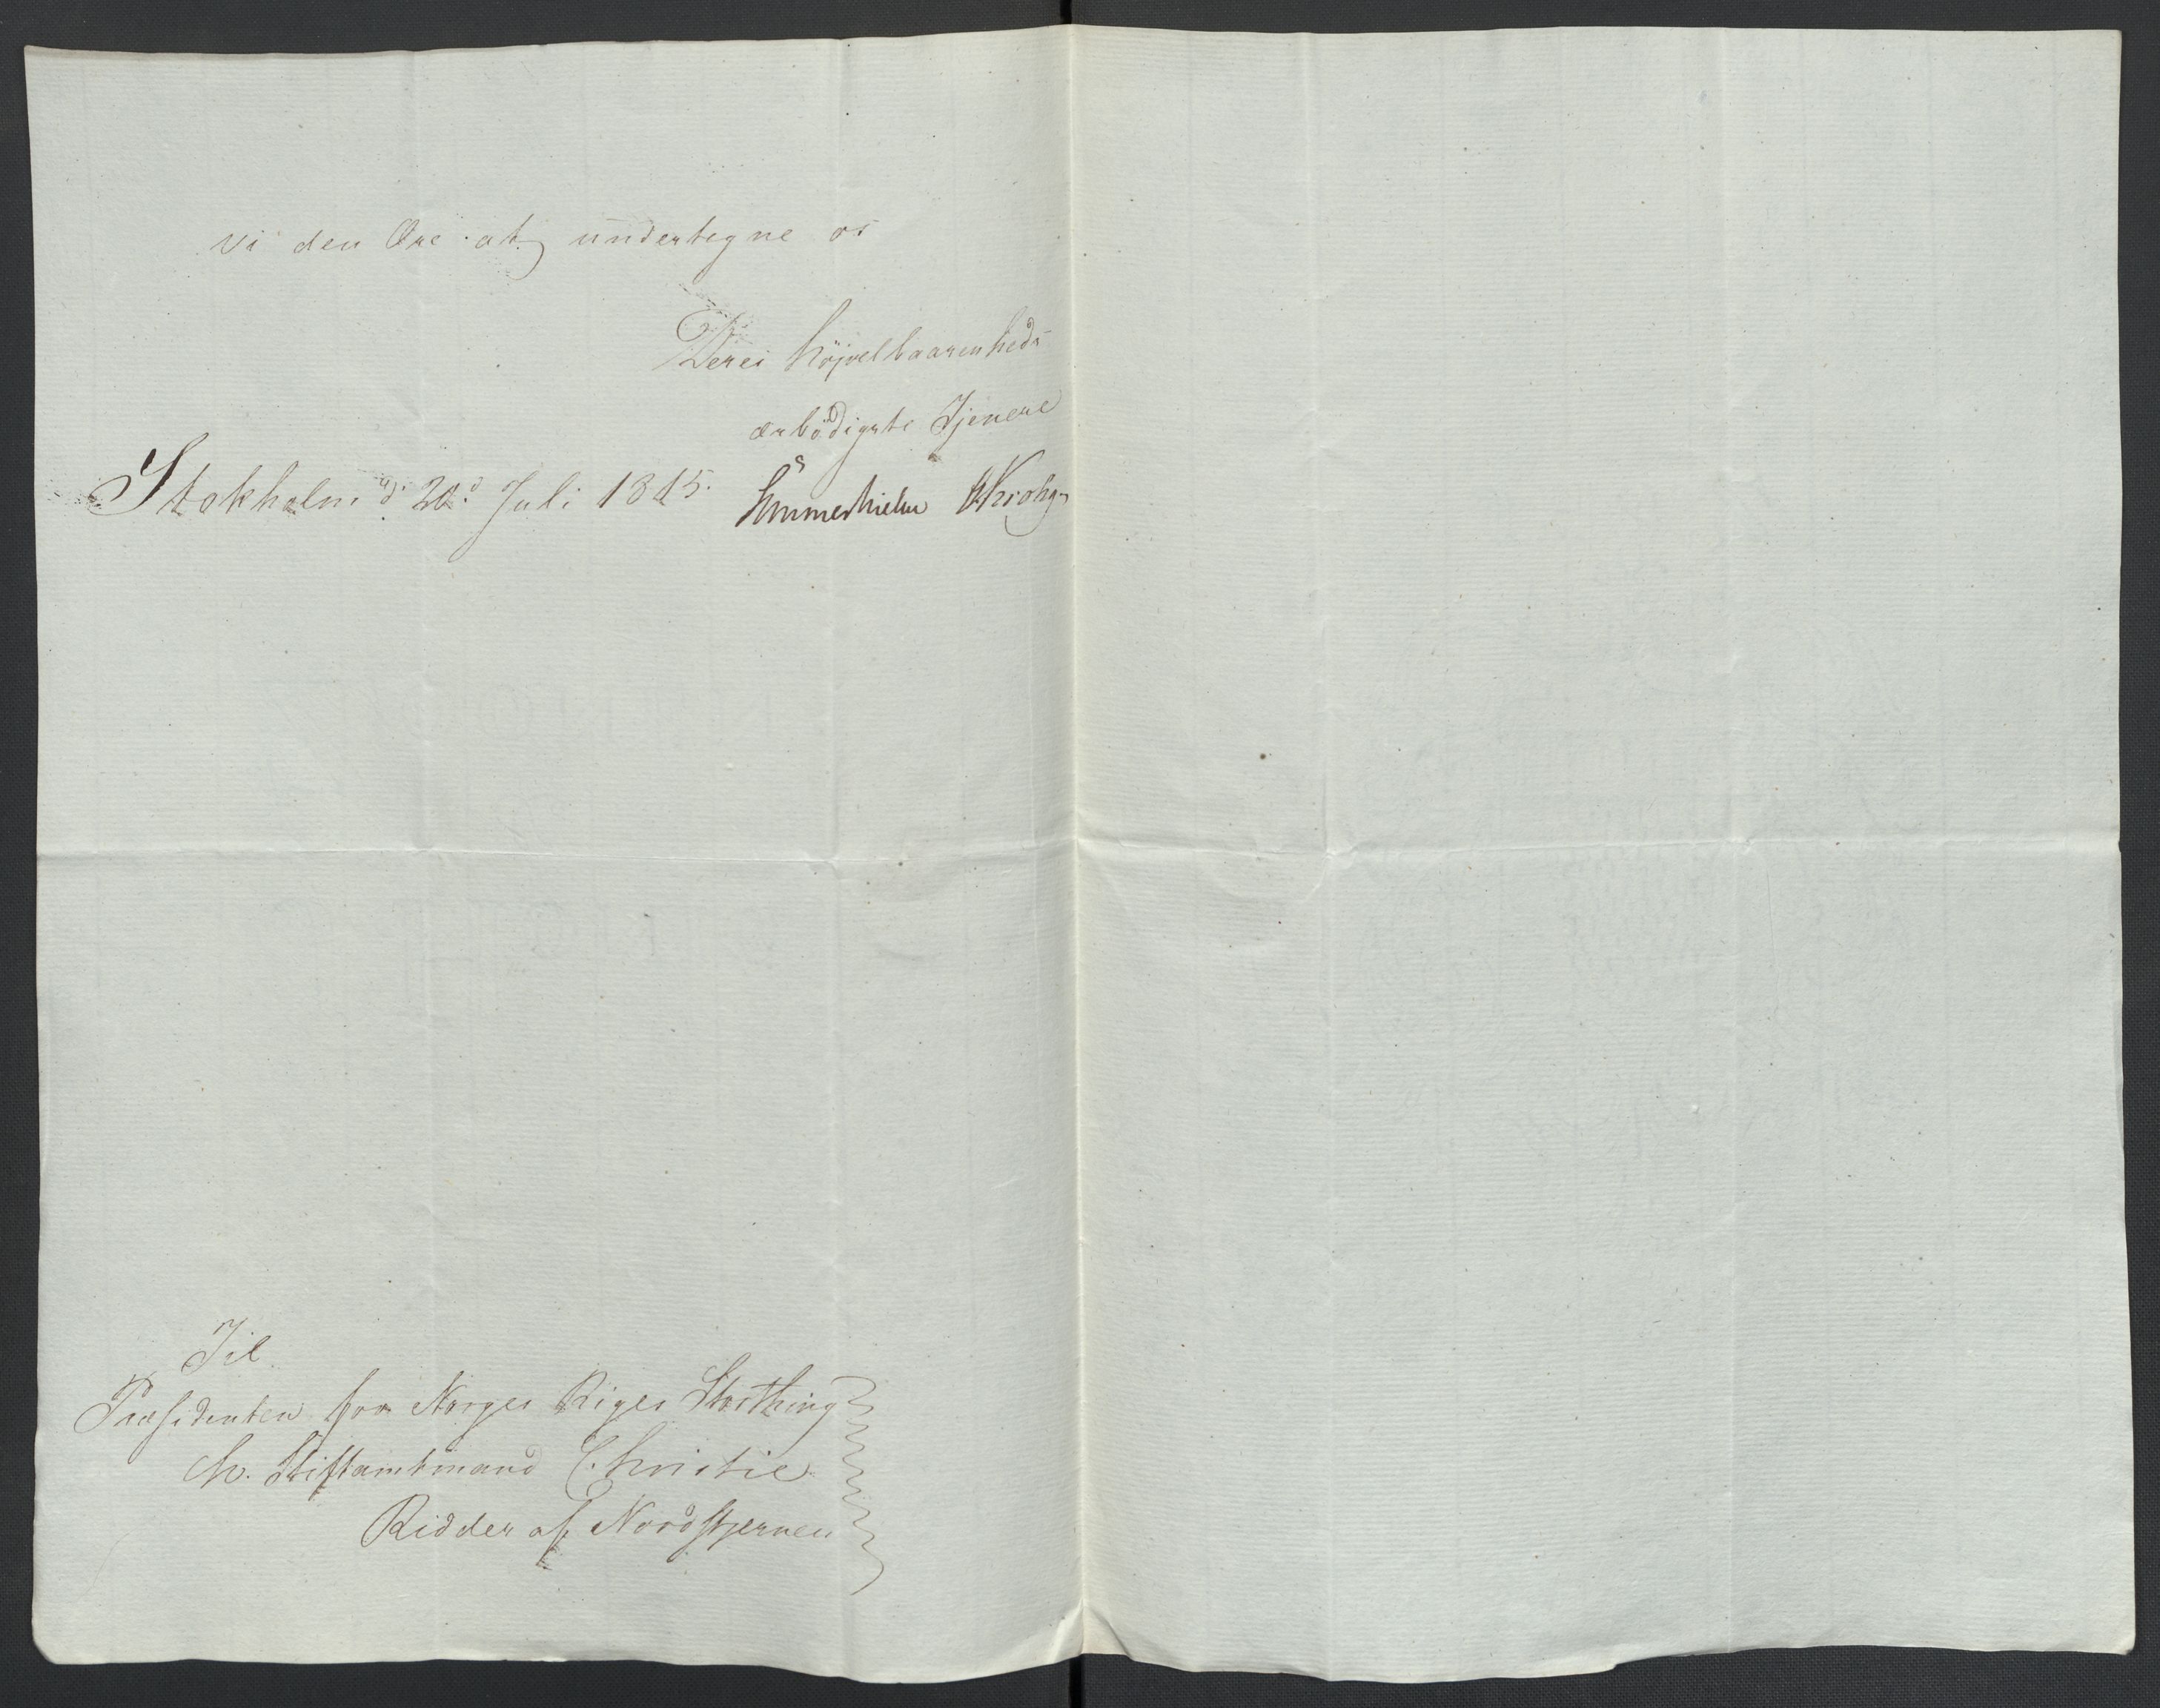 vi den Ære at undertegne os
Deres Höjvelbaarenheds
ærbödigste Tjenere
Stokholm d. 20.d Juli 1815.
Sommerhielm Krohg
Til
Præsidenten for Norges Riges Storthing
Hr. Stiftamtmand Christie
Ridder af Nordstjernen